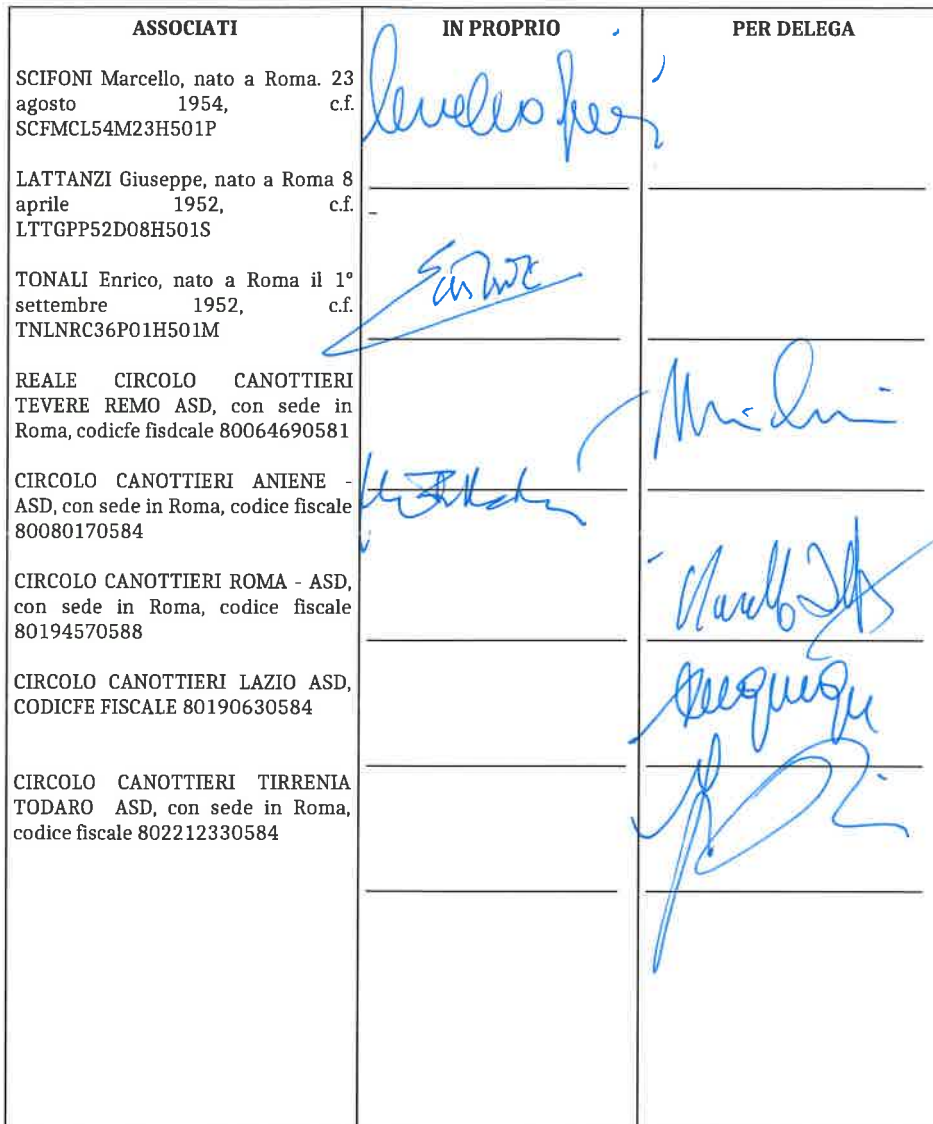 ASSOCIATI IN PROPRIO PER DELEGA
SCIFONI Marcello, nato a Roma. 23
agosto 1954, c.f.
SCFMCL54M23H501P
LATTANZI Giuseppe, nato a Roma 8
aprile 1952, c.f.
LTTGPP52D08H501S
TONALI Enrico, nato a Roma il 1°
settembre 1952, c.f.
TNLNRC36P01H501M
REALE CIRCOLO CANOTTIERI
TEVERE REMO ASD, con sede in
Roma, codicfe fisdcale 80064690581
CIRCOLO CANOTTIERI ANIENE -
ASD, con sede in Roma, codice fiscale
80080170584
CIRCOLO CANOTTIERI ROMA - ASD,
con sede in Roma, codice fiscale
80194570588
CIRCOLO CANOTTIERI LAZIO ASD,
CODICFE FISCALE 80190630584
CIRCOLO CANOTTIERI TIRRENIA
TODARO ASD, con sede in Roma,
codice fiscale 802212330584